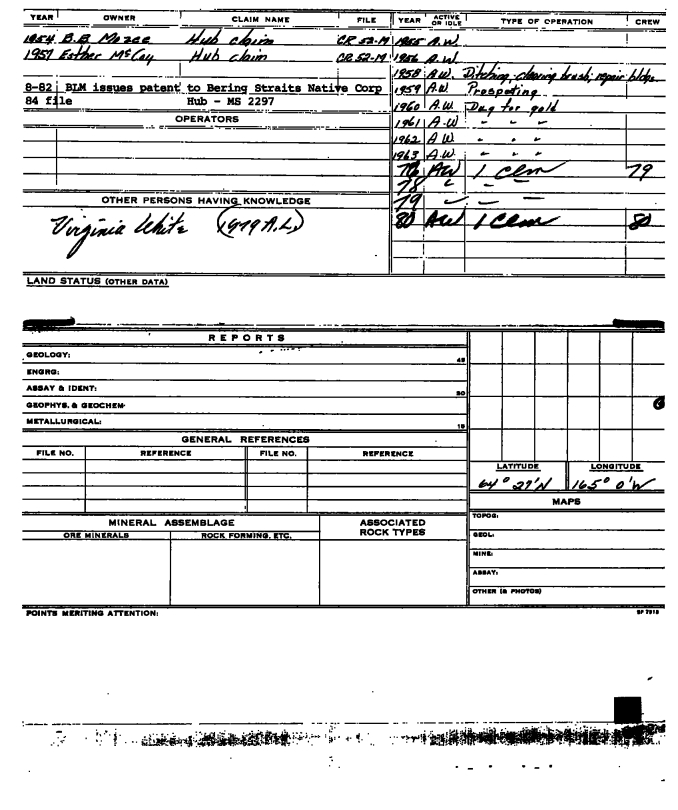 YEAR OWNER CLAIM NAME FILE YEAR ACTIVE OR IDLE TYPE OF OPERATION CREW
1954 B.B. Mozee Hub claim CR 52-M 1955 A.W.
1957 Esther McCoy Hub claim CR 52-M 1956 A.W.
1958 A.W. Ditching, clearing brush, repair bldgs.
8-82 BLM issues patent to Bering Straits Native Corp 1959 A.W. Prospecting
84 file Hub - MS 2297 1960 A.W. Dug for gold
OPERATORS 1961 A.W. " " "
1962 A.W. " " "
1963 A.W. " " "
76 AW 1 clm 79
78 " - -
OTHER PERSONS HAVING KNOWLEDGE 79 - -
Virginia White (1979 A.L.) 80 AW 1 clm 80
LAND STATUS (OTHER DATA)
REPORTS
GEOLOGY: 45
ENGRG:
ASSAY & IDENT: 30
GEOPHYS. & GEOCHEM.
METALLURGICAL: 15
GENERAL REFERENCES
FILE NO. REFERENCE FILE NO. REFERENCE
LATITUDE LONGITUDE
64° 27' N 165° 0' W
MAPS
MINERAL ASSEMBLAGE ASSOCIATED ROCK TYPES TOPOG:
ORE MINERALS ROCK FORMING, ETC. GEOL:
MINE:
ASSAY:
OTHER (& PHOTOS)
POINTS MERITING ATTENTION: